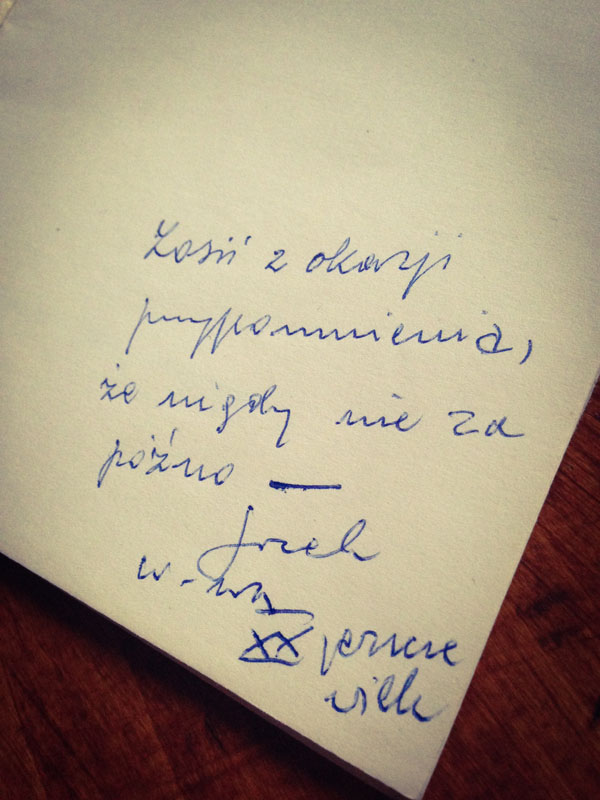 Zosi z okazji
przypomnienia,
że nigdy nie za
późno —
Jacek
W-wa
XX jeszcze
wiek